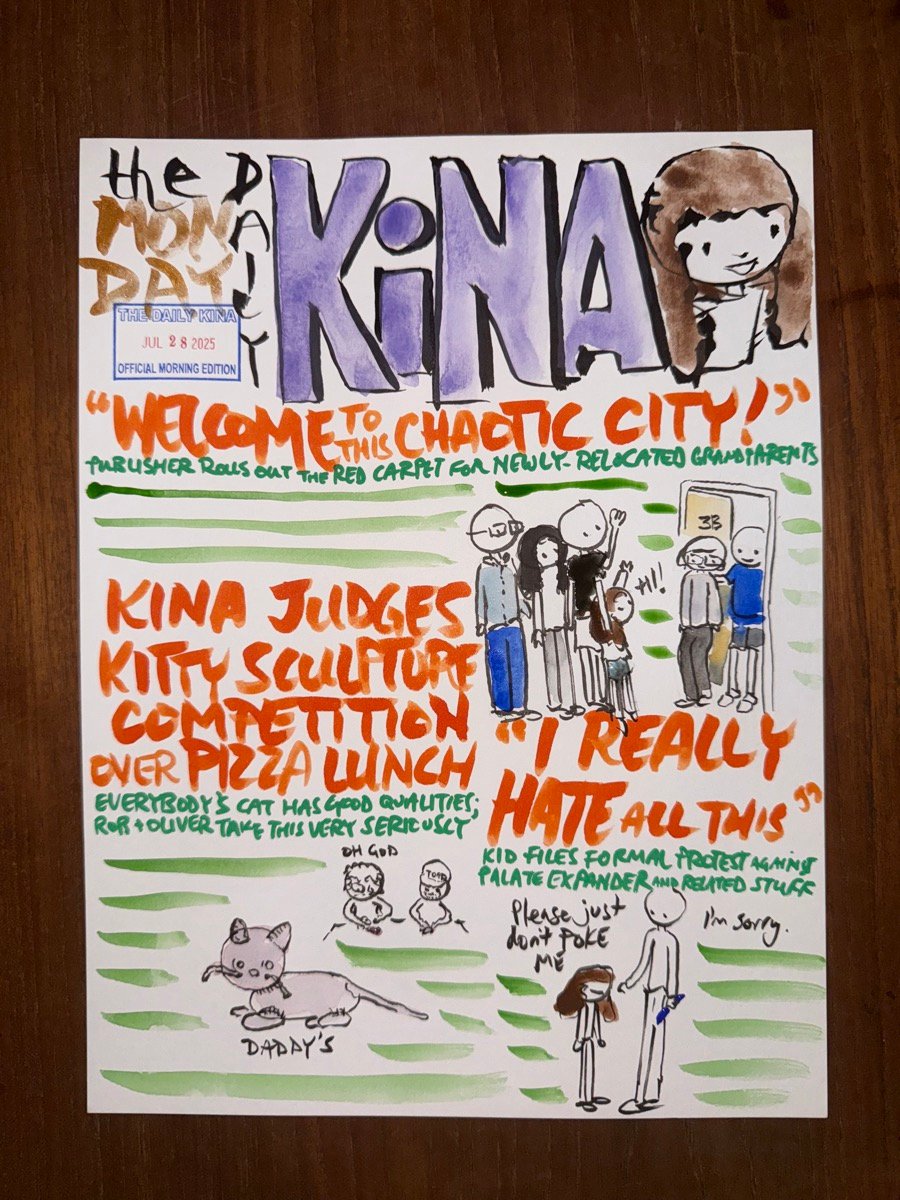 the DAILY KiNA
MONDAY
THE DAILY KINA
JUL 28 2025
OFFICIAL MORNING EDITION
“WELCOME TO THIS CHAOTIC CITY!”
PUBLISHER ROLLS OUT THE RED CARPET FOR NEWLY-RELOCATED GRANDPARENTS
3B
HI!!
KINA JUDGES
KITTY SCULPTURE
COMPETITION
OVER PIZZA LUNCH
EVERYBODY'S CAT HAS GOOD QUALITIES;
ROB + OLIVER TAKE THIS VERY SERIOUSLY
OH GOD
DADDY'S
“I REALLY
HATE ALL THIS”
KID FILES FORMAL PROTEST AGAINST
PALATE EXPANDER AND RELATED STUFF
Please just
don't POKE
ME
I'm sorry.